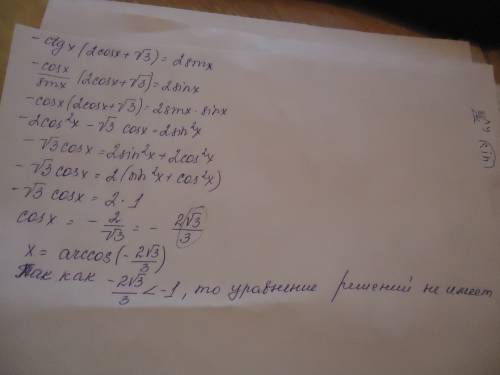 -ctgx(2cosx+√3)=2sinx
-cosx/sinx (2cosx+√3)=2sinx
-cosx(2cosx+√3)=2sinx·sinx
-2cos²x-√3 cosx=2sin²x
-√3cosx=2sin²x+2cos²x
-√3cosx=2(sin²x+cos²x)
-√3 cosx=2·1
cosx = -2/√3 = -2√3/3
x= arccos(-2√3/3)
Так как -2√3/3 <-1, то уравнение решений не имеет